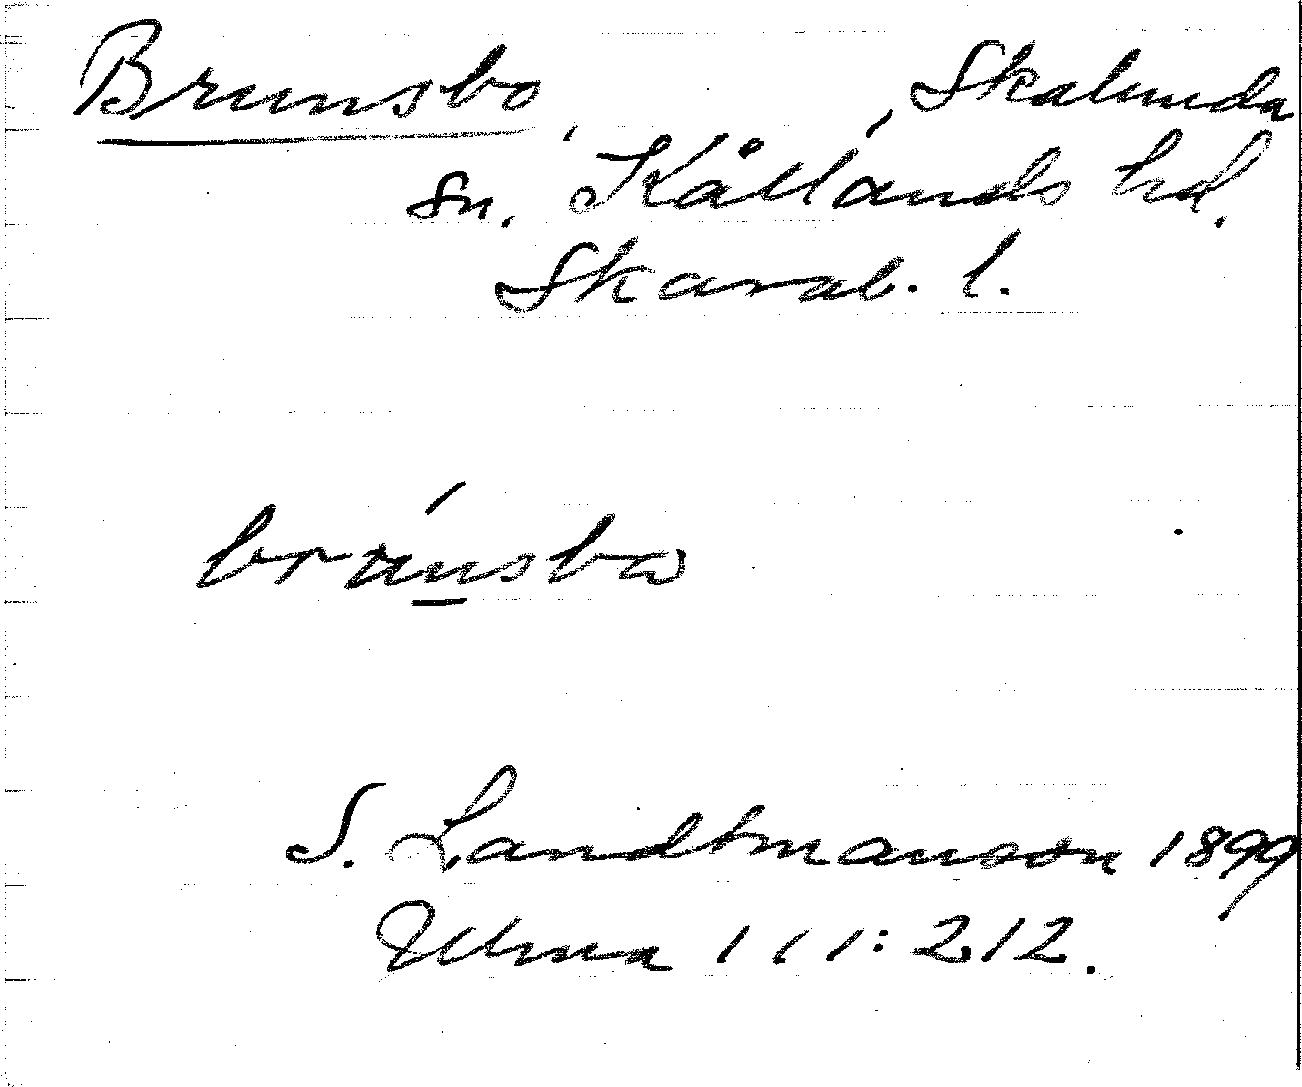 Brunsbo, Skalunda
sn. Kållands hd.
Skarab. l.
bru̲nsbω
S. Landtmanson 1899
Ulma 111:212.